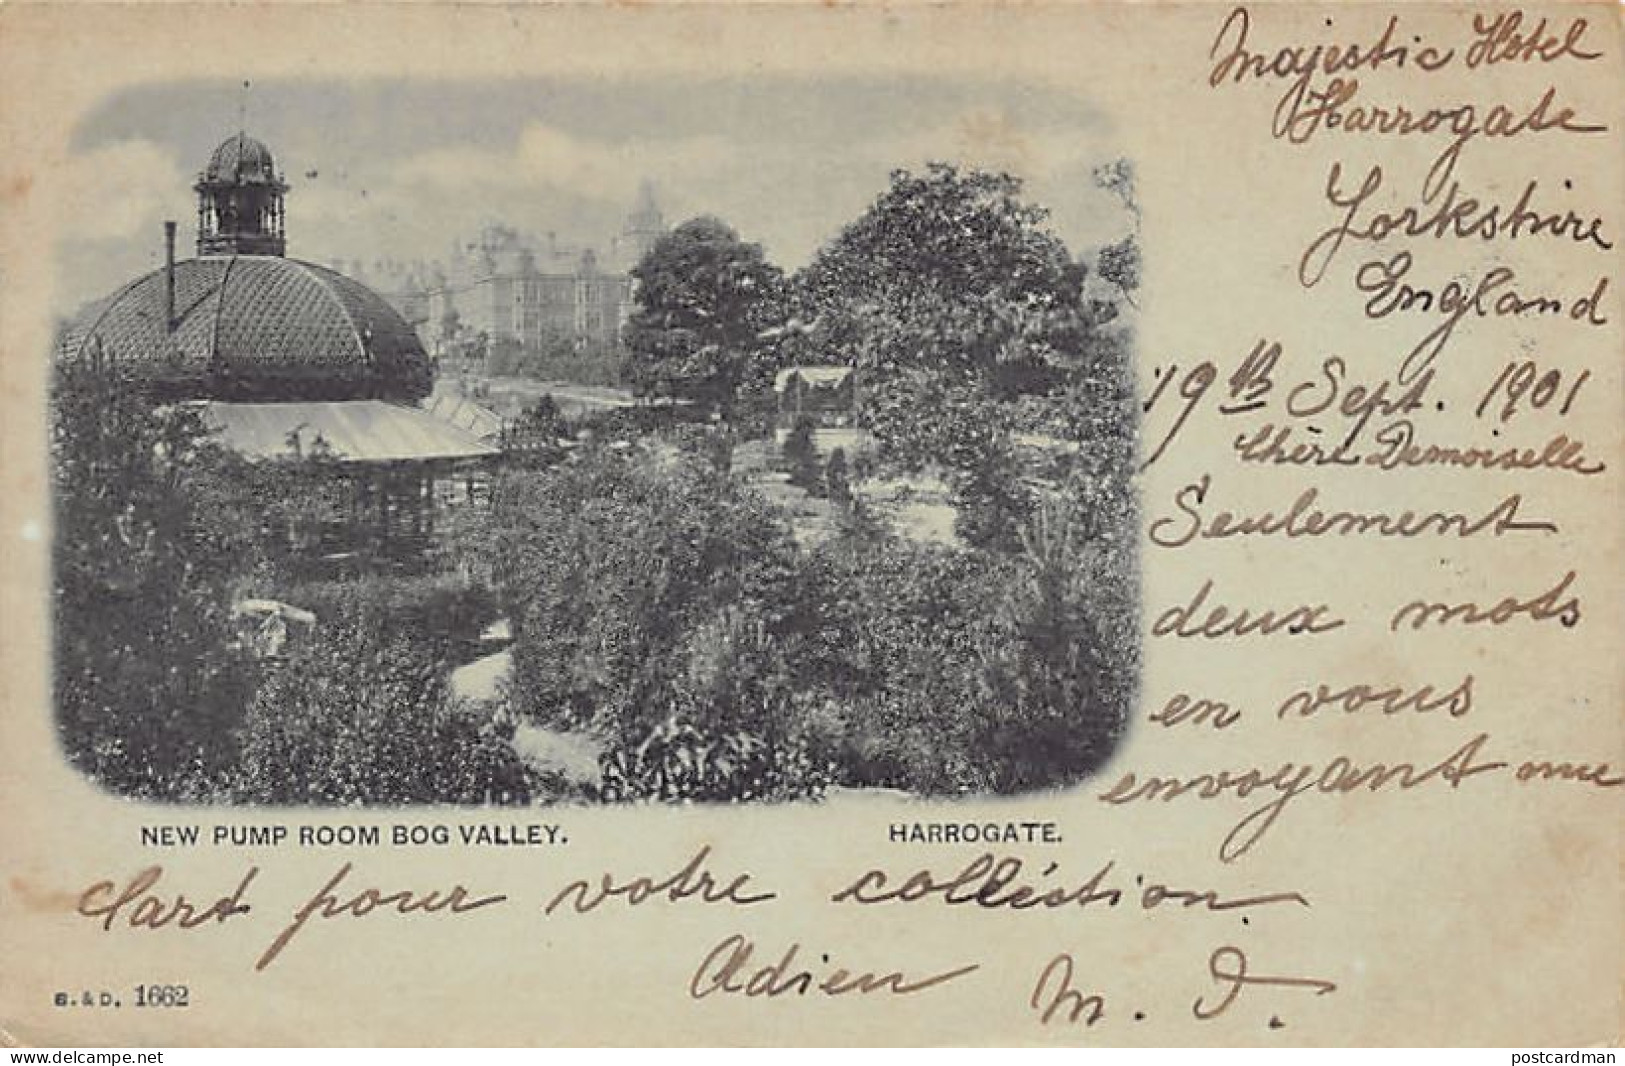 Majestic Hotel
Harrogate
Yorkshire
England
19th Sept. 1901
Chère Demoiselle
Seulement
deux mots
en vous
envoyant une
NEW PUMP ROOM BOG VALLEY. HARROGATE.
Cart pour votre colléction.
Adieu M. J.
B. & D. 1662
www.delcampe.net
postcardman